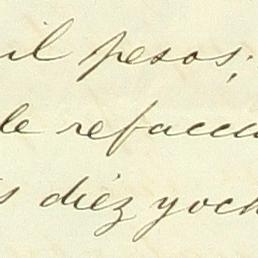 il pesos;
le refacci
s diéz yoch